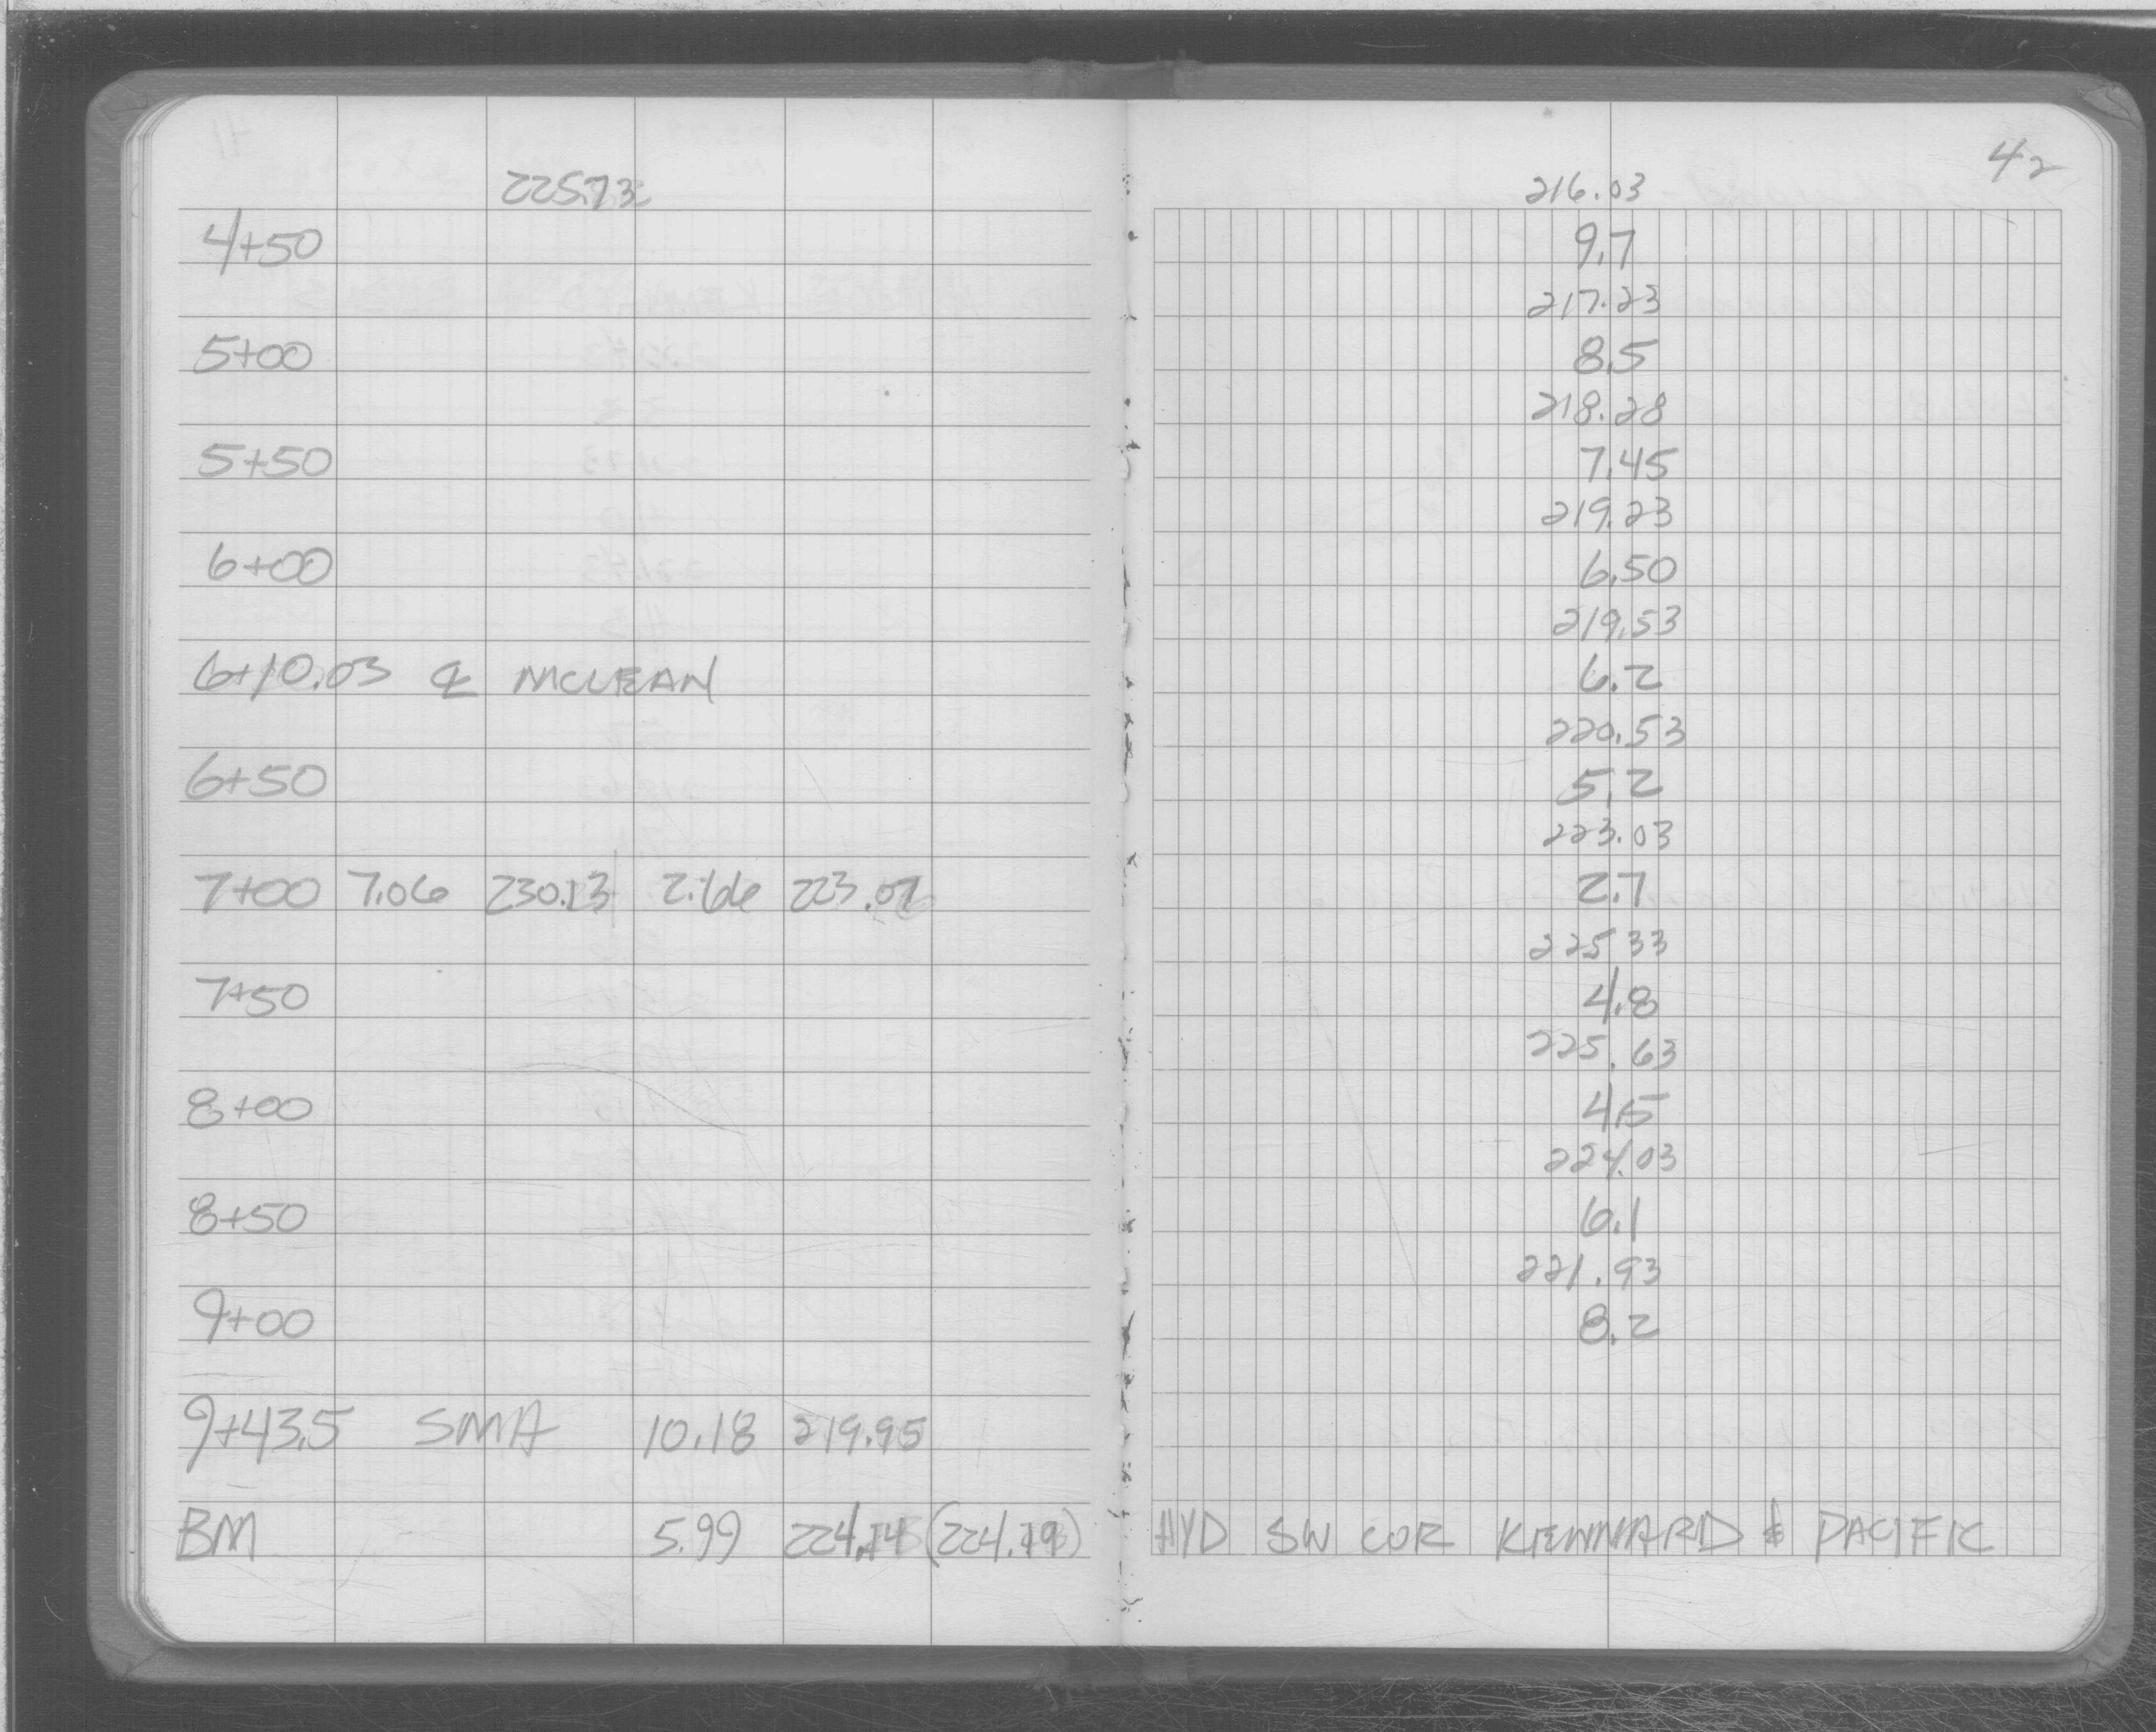 42
225.73 216.03
4+50 9.7
217.23
5+00 8.5
218.28
5+50 7.45
219.23
6+00 6.50
219.53
6+10.03 ℄ MCLEAN 6.2
220.53
6+50 5.2
223.03
7+00 7.06 230.13 2.66 223.07 2.7
225.33
7+50 4.8
225.63
8+00 4.5
224.03
8+50 6.1
221.93
9+00 8.2
9+43.5 SMA 10.18 219.95
BM 5.99 224.14 (224.19) HYD SW COR KENNARD & PACIFIC